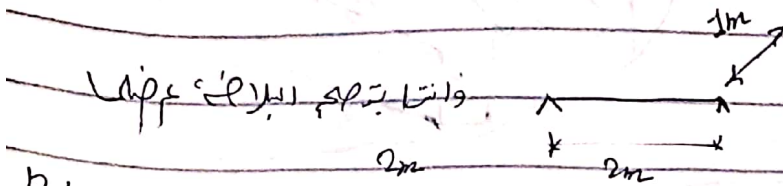 1m
وانتا بتصمم البلاطة عرضها
2m 2m